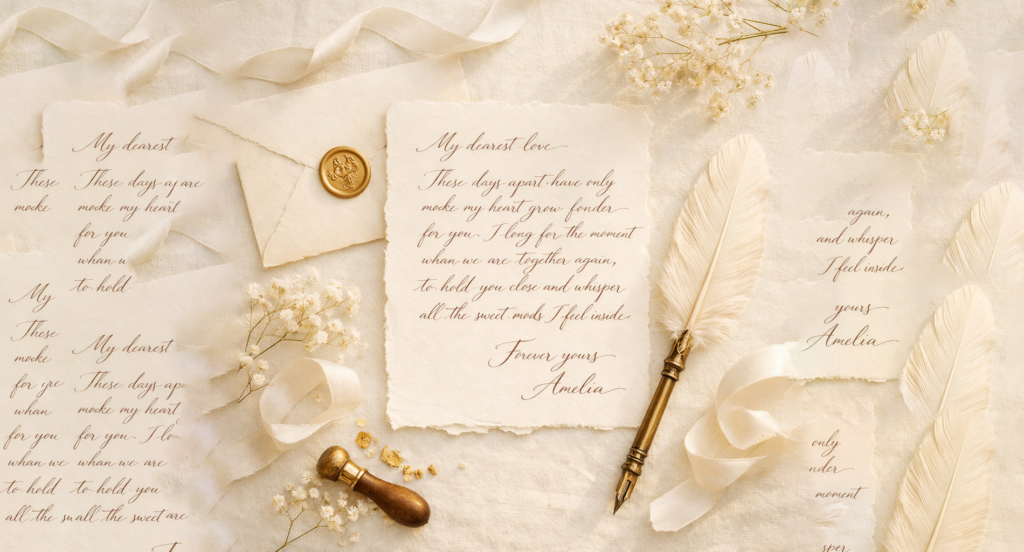 My dearest
These These days ay are
mocke mocke my heart
for you
whan u
to hold
My
These
mocke
My dearest
for yre These days ap
whan mocke my heart
for you for you. I lo
whan we whan we are
to hold to hold you
all the su all the sweet are
My dearest love
These days apart have only
mocke my heart grow fonder
for you. I long for the moment
whan we are together again,
to hold you close and whisper
all the sweet mods I feel inside
Forever yours
Amelia
again,
and whisper
I feel inside
yours
Amelia
only
nder
moment
sper